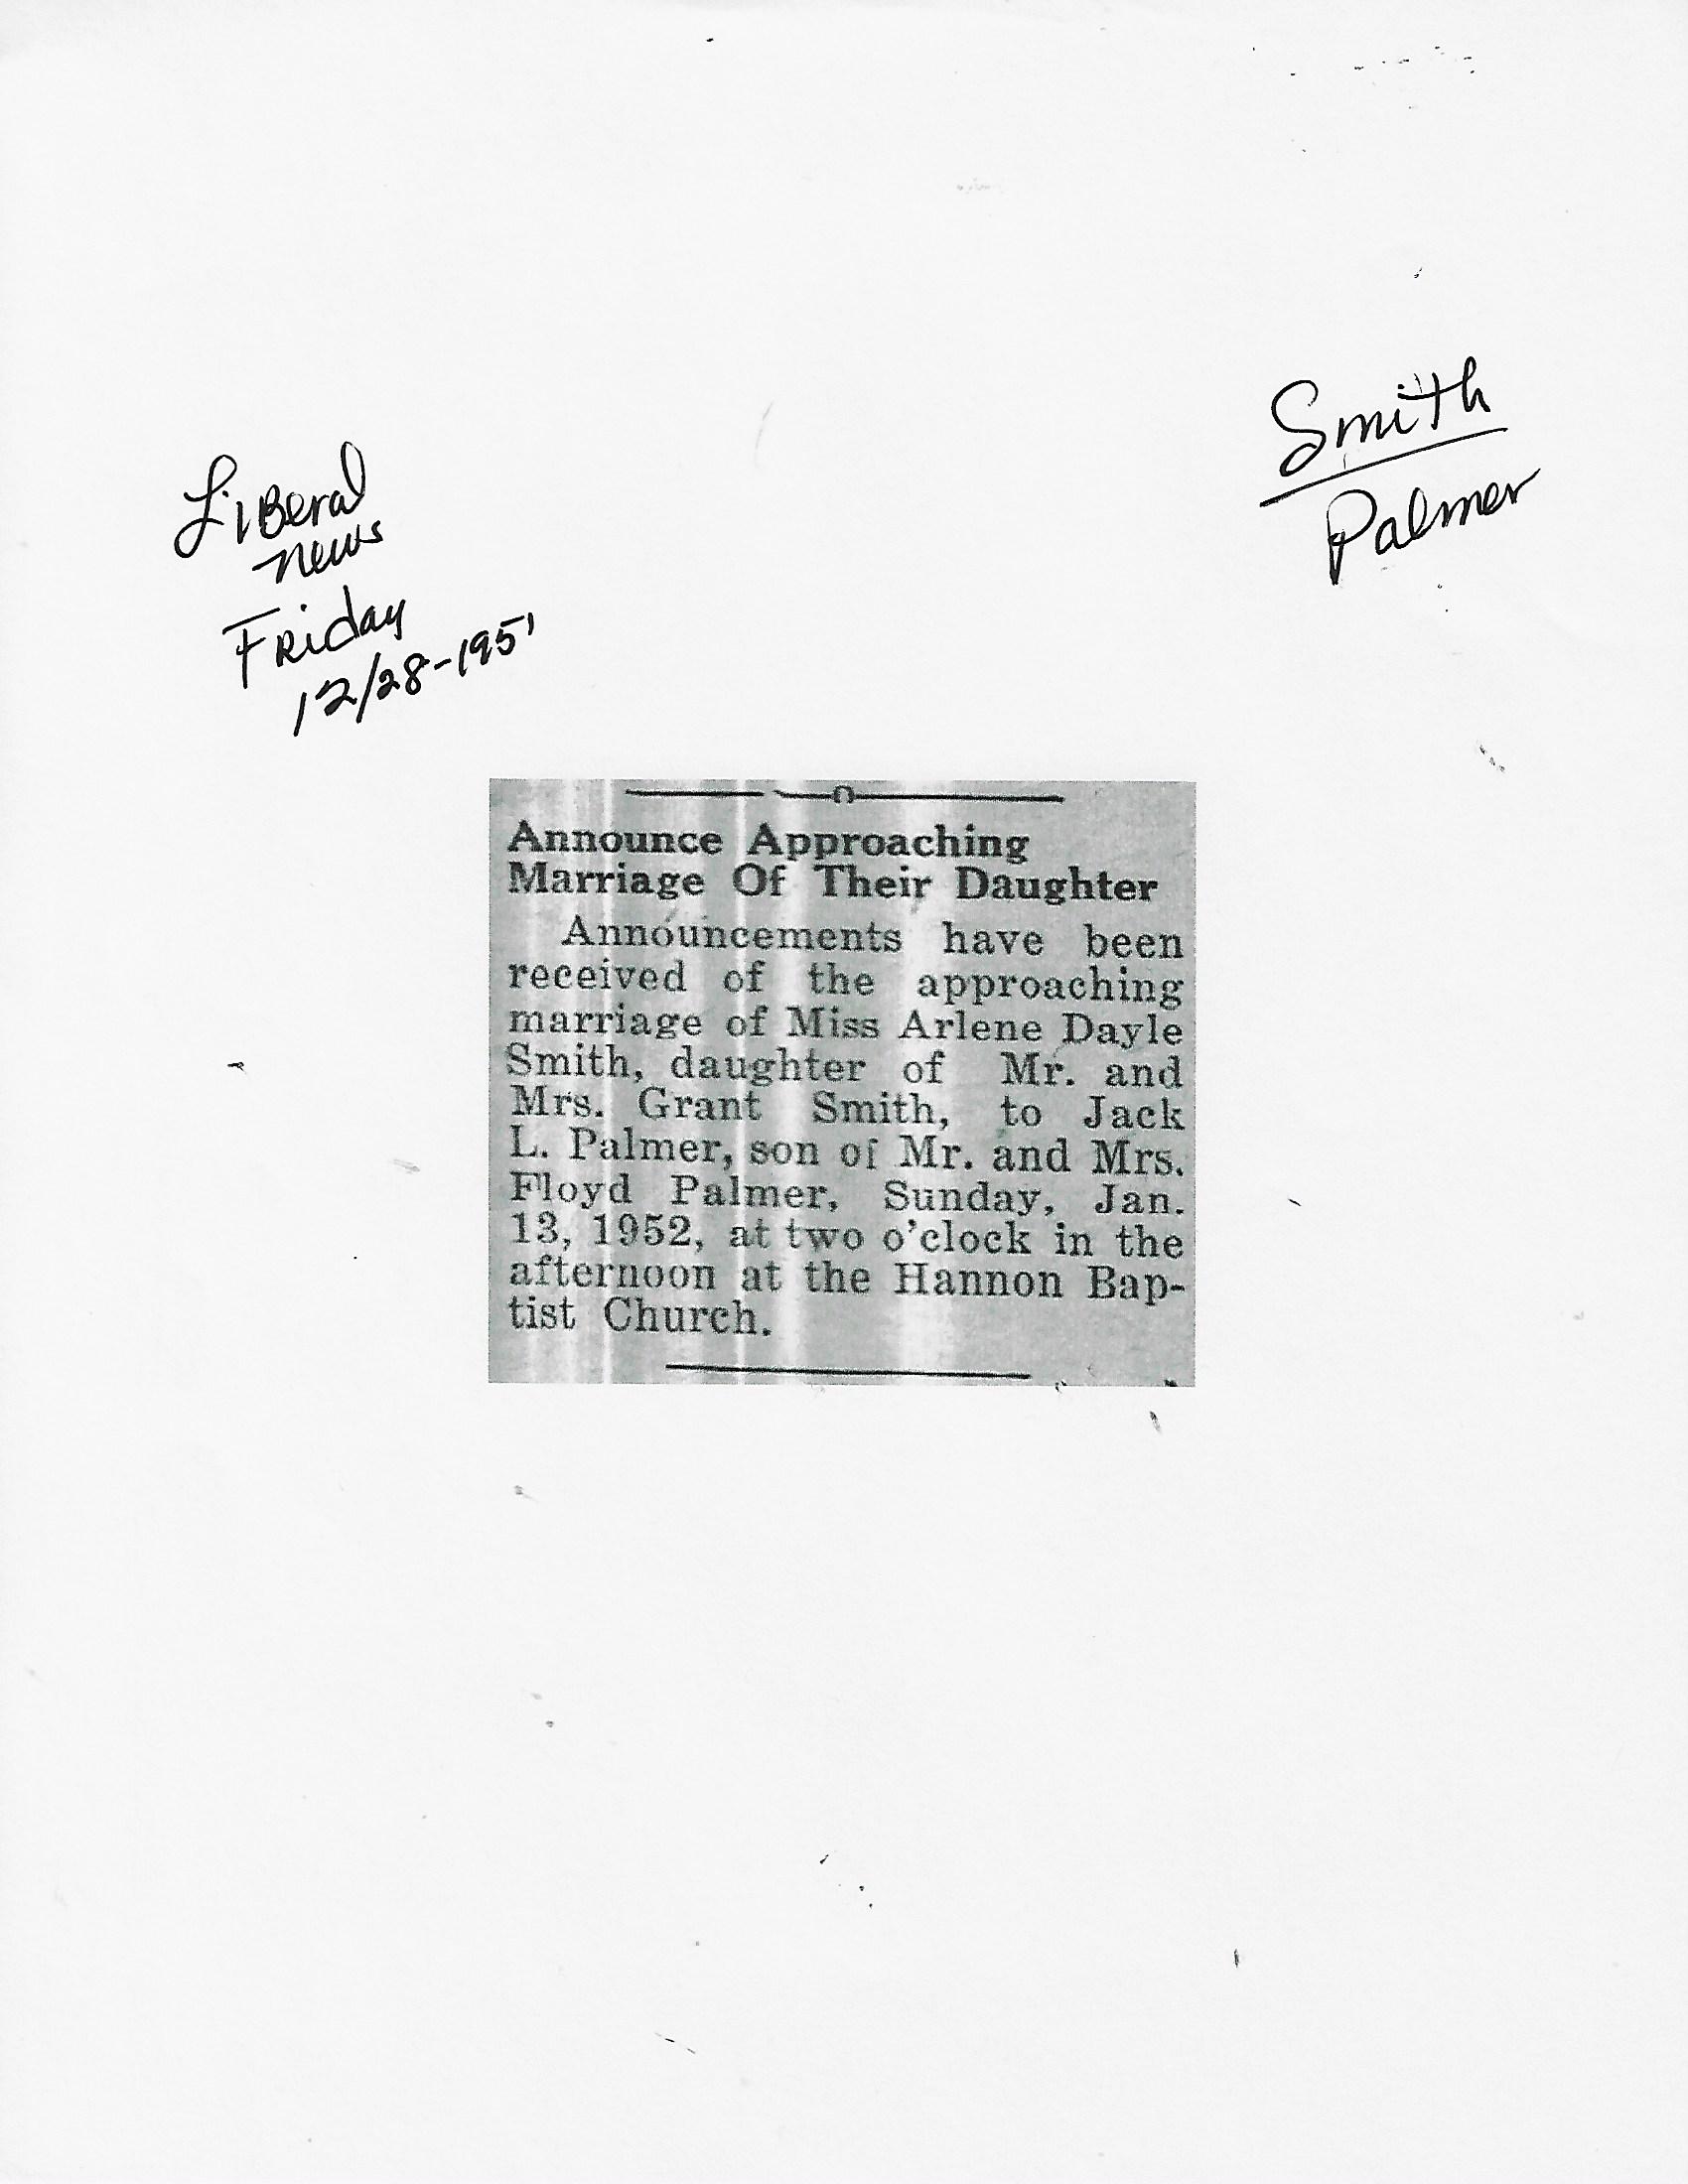 Smith
Palmer
Liberal
news
Friday
12/28-1951
Announce Approaching
Marriage Of Their Daughter
Announcements have been
received of the approaching
marriage of Miss Arlene Dayle
Smith, daughter of Mr. and
Mrs. Grant Smith, to Jack
L. Palmer, son of Mr. and Mrs.
Floyd Palmer, Sunday, Jan.
13, 1952, at two o'clock in the
afternoon at the Hannon Bap-
tist Church.